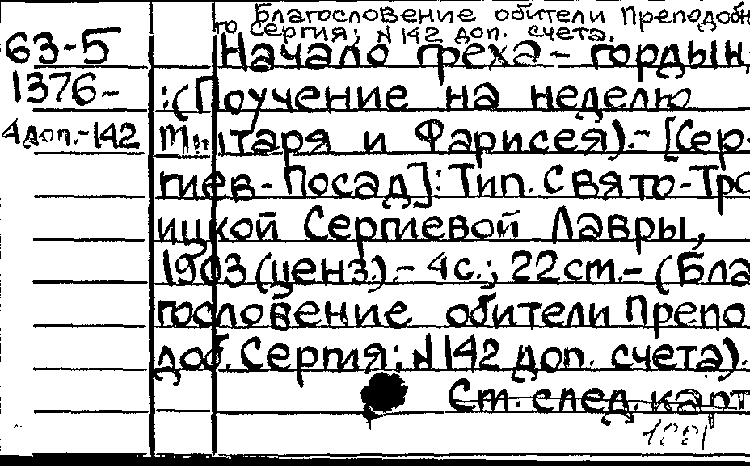 Благословение обители Преподобн
го Сергия; N 142 доп. счета.
63-5 Начало греха – гордын
1376– :(Поучение на неделю
4 доп.-142 Мытаря и Фарисея).– [Сер-
гиев-Посад]: Тип. Свято-Тро
ицкой Сергиевой Лавры,
1903 (ценз).– 4 с.; 22 см.– (Бла
гословение обители Препо
доб. Сергия; N 142 доп. счета).
См. след. карт